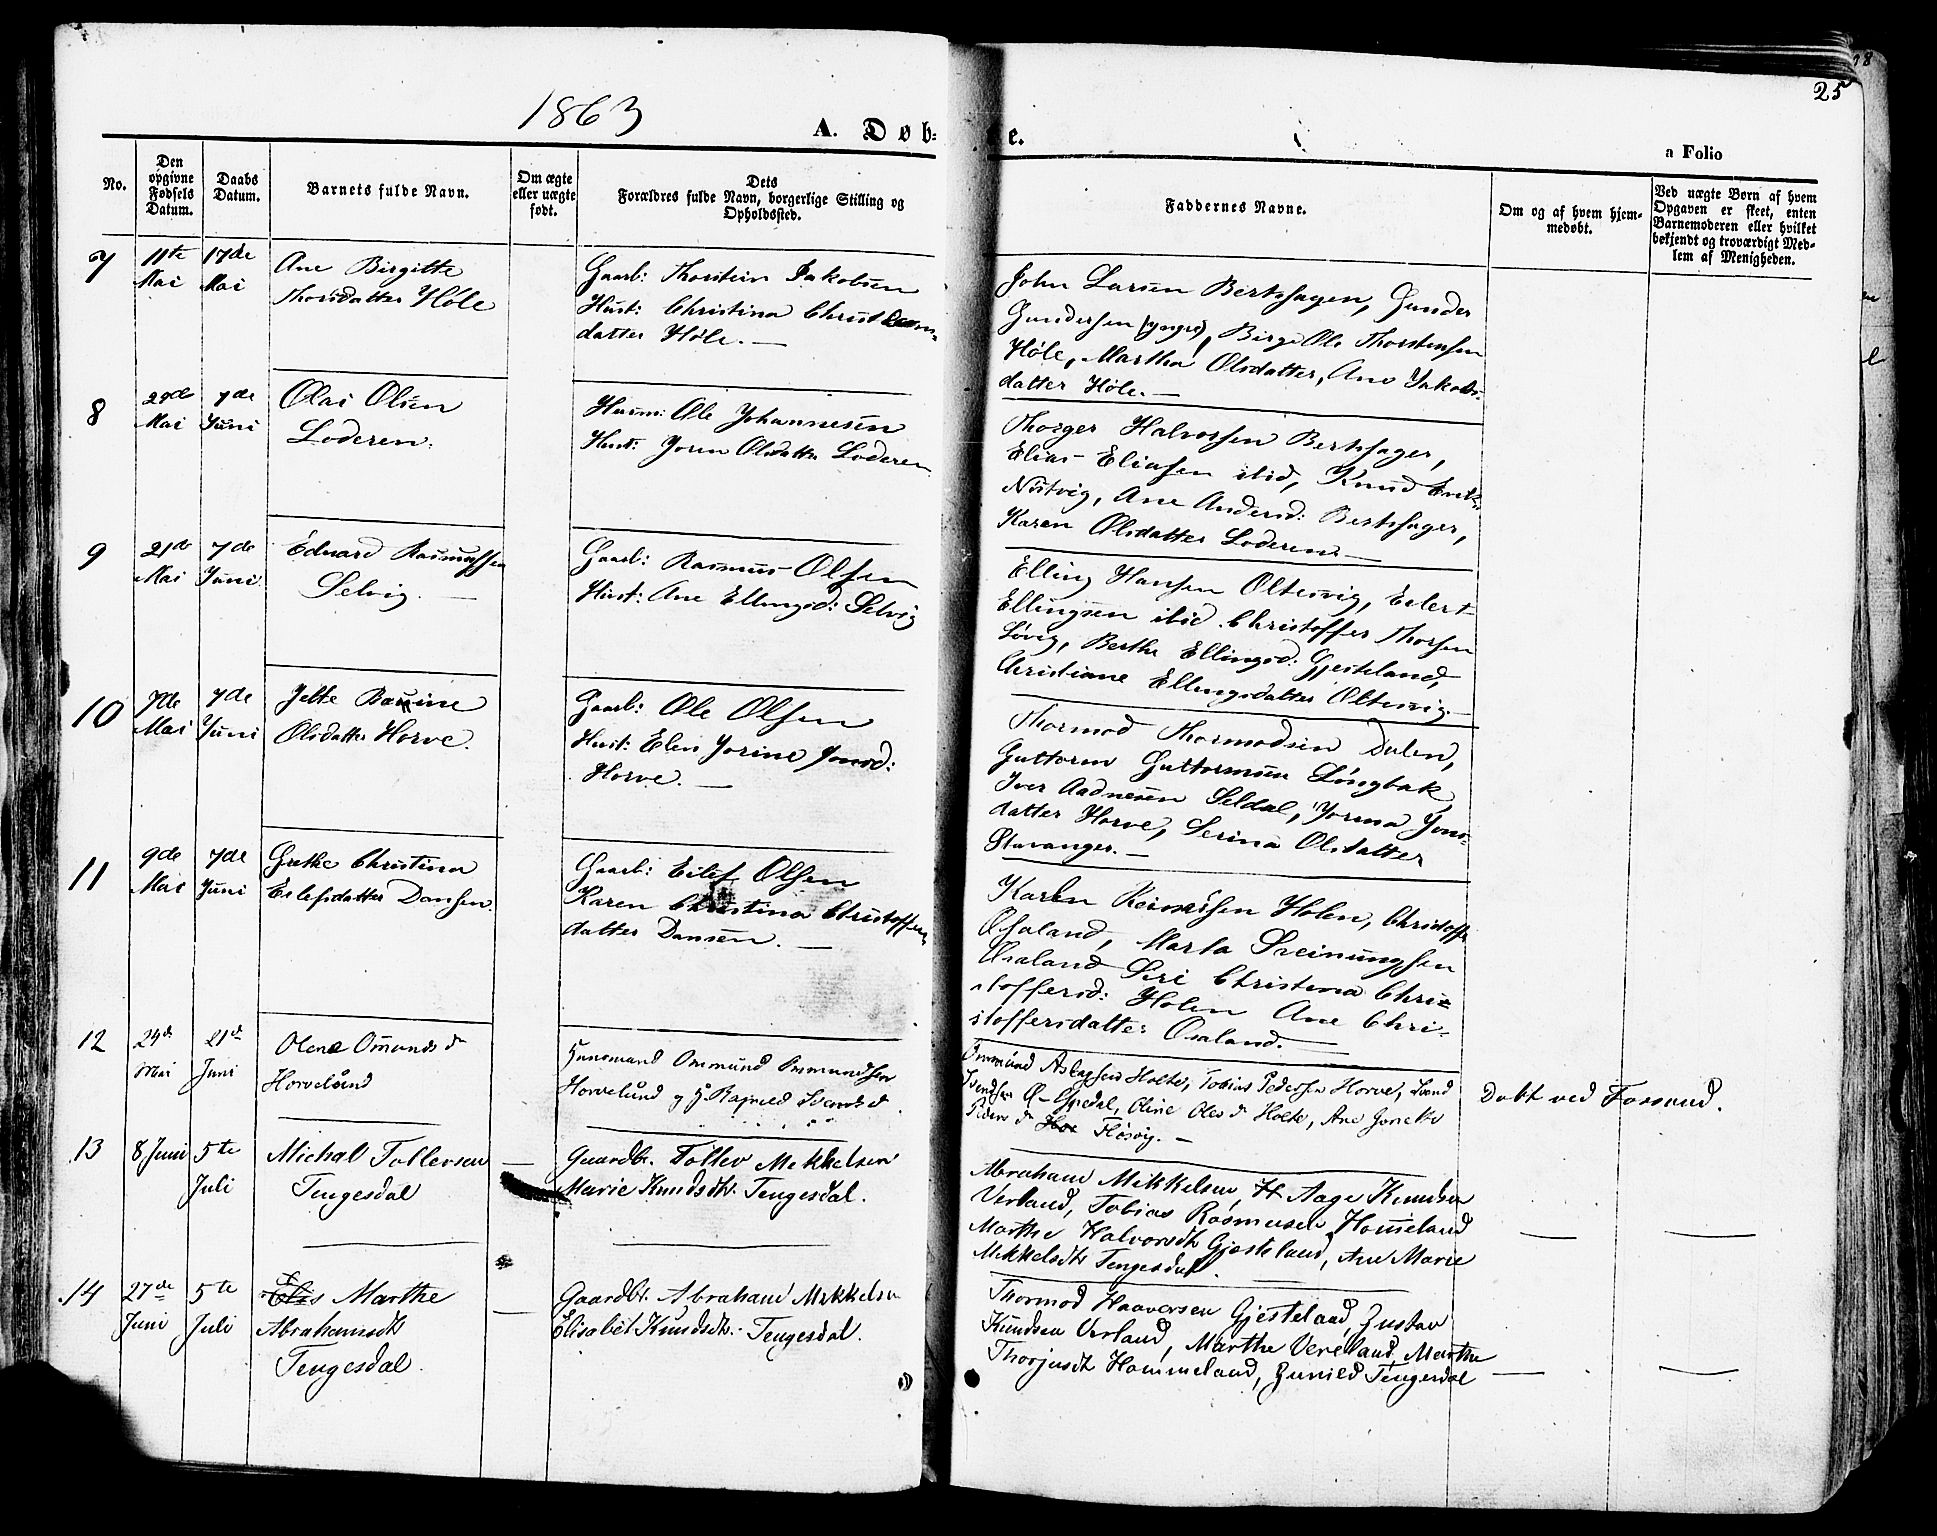 1863
A. Døb-
e.
a Folio
25
No.
Den opgivne Fødsels Datum.
Daabs Datum.
Barnets fulde Navn.
Om ægte eller uægte født.
Dets Forældres fulde Navn, borgerlige Stilling og Opholdssted.
Faddernes Navne.
Om og af hvem hjemmedøbt.
Ved uægte Børn af hvem Opgaven er skeet, enten Barnemoderen eller hvilket bekjendt og troværdigt Medlem af Menigheden.
7
11te Mai
17de Mai
Ane Birgitte
Thorsdatter Høle
Gaarb: Thorstein Jakobsen
Hust: Christina
datter Høle. —
John Larsen Bertsagen, Gunder
Gundersen (yngre), Birge Ole Thorstensen
Høle, Martha Olsdatter, Ane Jakobs-
datter Høle. —
8
Mai
7de Juni
Olai Olsen
Loderen.
Husm: Ole Johannesen
Hust: Joren Olsdatter Loderen
Thorger Halvorsen Bertsager,
Elias Eliasen ibid, Knud
Nistvig, Ane Andersd: Bertsager,
Karen Olsdatter Loderen —
9
21de Mai
7de Juni
Eduard Rasmussen
Selvig. —
Gaarb: Rasmus Olsen
Hust: Ane Ellingsd: Selvig
Elling Hansen Oltesvig, Eilert
Ellingsen ibid. Christoffer Thorsen
Løvig, Berthe Ellingsd: Gjesteland,
Christiane Ellingsdatter Oltesvig
10
7de Mai
7de Juni
Jette
Olsdatter Horve.
Gaarb: Ole Olsen
Hust: Elen Jorine Jonsd:
Horve. —
Thormod Thormodsen Dalen,
Guttorm Guttormsen Longbak
Iver Aadnesen Seldal, Jorina Jons-
datter Horve, Serina Olsdatter
Stavanger. —
11
9de Mai
7de Juni
Grethe Christina
Eilefsdatter Dansen.
Gaarb: Eilef Olsen
Karen Christina Christoffers
datter Dansen. —
Karen Holen, Christoffer
Osaland, Marta Sveinungsen
Osaland Siri Christina Chri-
stoffersd: Holen Ane Chri-
stoffersdatter Osaland. —
12
24de Mai
21de Juni
Olene Omunds d
Horvelund
Huusmand Ommund Ommundsen
Horvelund og H. Ragnild Svends d.
Ommund Aslagsen Holte, Tobias Pedersen Horve, Svend
Svendsen Ø-Espedal, Oline Oles d Holte, Ane Jonette
Peders d Høsvig. —
Døbt ved Forsand.
13
8 Juni
5te Juli
Michal Tollevsen
Tengesdal
—
Gaardbr. Tollev Mekkelsen
Marie Knudsdtr. Tengesdal.
Abraham Mikkelsen, H Aage Knudsen
Verland, Tobias Rasmusen, Homeland
Marthe Halvorsdtr Gjesteland, Ane Marie
Mikkelsdtr Tengesdal.
—
—
14
27de Juni
5te Juli
Elis Marthe
Abrahamsdtr
Tengesdal.
—
Gaardbr. Abraham Mikkelsen
Elisabet Knudsdtr. Tengesdal.
Thormod Haaversen Gjesteland, Gustav
Knudsen Verland, Marthe Vereland, Marthe
Thorjusdtr Hommeland, Gunild Tengesdal
—
—